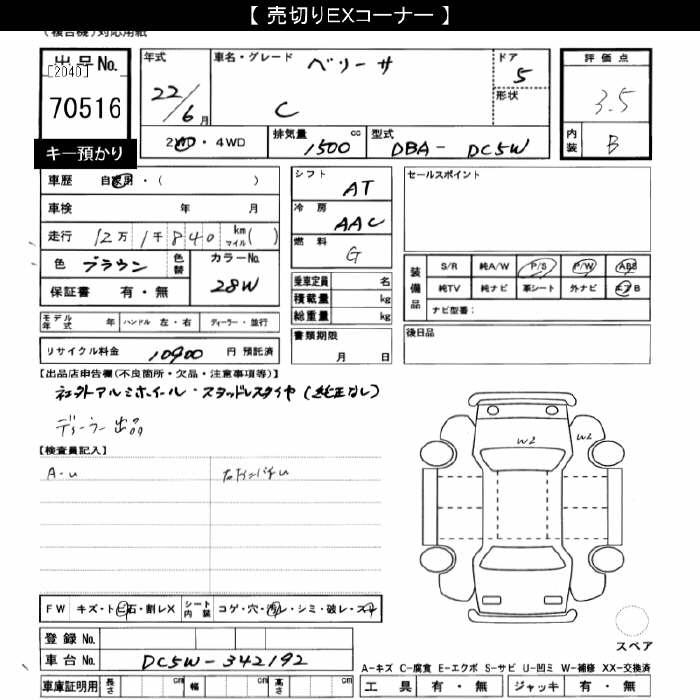 【 売切りEXコーナー 】
(複合機)対応用紙
出品No.
[2040]
70516
キー預かり
年式
22/6月
車名・グレード
ベリーサ
C
ドア
5
形状
評価点
3.5
内装
B
2WD・4WD
排気量 1500 cc
型式 DBA- DC5W
車歴 自家用・( )
車検 年 月
走行 12万1千840 km マイル( )
色 ブラウン 色替
カラーNo. 28W
保証書 有・無
シフト AT
冷房 AAC
燃料 G
乗車定員 名
積載量 kg
総重量 kg
セールスポイント
装備品
S/R 純A/W P/S P/W ABS
純TV 純ナビ 革シート 外ナビ エアB
ナビ型番:
モデル年式 年 ハンドル 左・右 ディーラー・並行
書類期限
月 日
後日品
リサイクル料金 10900 円 預託済
【出品店申告欄(不良箇所・欠品・注意事項等)】
社外アルミホイール・スタッドレスタイヤ(純正なし)
ディーラー出品
【検査員記入】
A-u
W2
W2
FW キズ・トビ石・割レX
シート内装 コゲ・穴・汚レ・シミ・破レ・スレ
スペア
登録No.
車台No. DC5W-342192
A-キズ C-腐食 E-エクボ S-サビ U-凹ミ W-補修 XX-交換済
車庫証明用 長さ cm 幅 cm 高さ cm
工具 有・無 ジャッキ 有・無